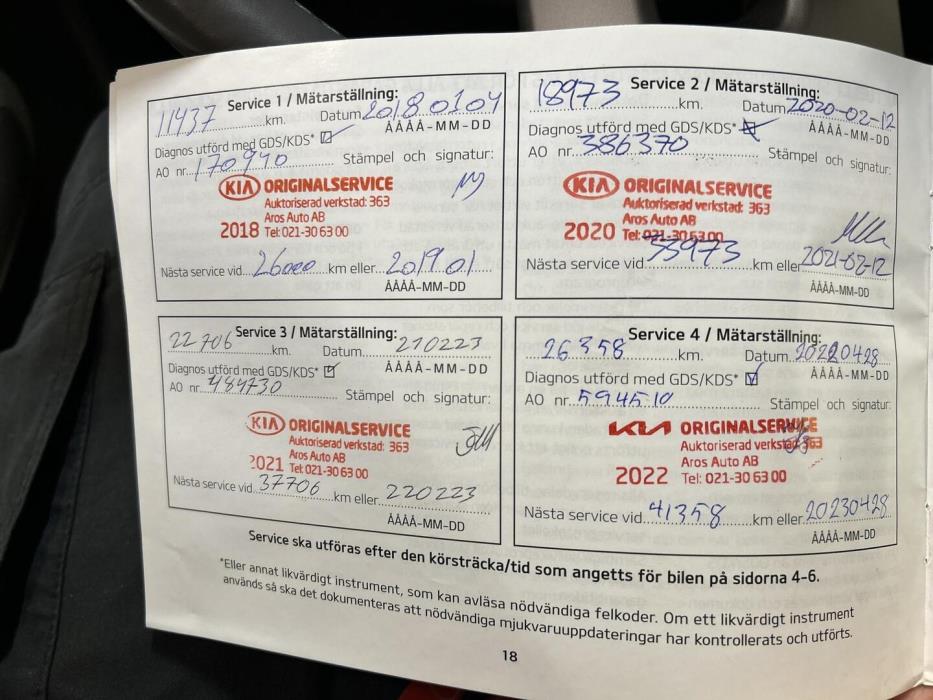 Service 1 / Mätarställning:
11437 km. Datum 20180104
ÅÅÅÅ-MM-DD
Diagnos utförd med GDS/KDS*
AO nr. 170940 Stämpel och signatur:
KIA ORIGINALSERVICE
Auktoriserad verkstad: 363
Aros Auto AB
2018 Tel: 021-30 63 00
Nästa service vid 26000 km eller 2019.01
ÅÅÅÅ-MM-DD
Service 2 / Mätarställning:
18973 km. Datum 2020-02-12
ÅÅÅÅ-MM-DD
Diagnos utförd med GDS/KDS*
AO nr. 386370 Stämpel och signatur:
KIA ORIGINALSERVICE
Auktoriserad verkstad: 363
Aros Auto AB
2020 Tel: 021-30 63 00
Nästa service vid 33973 km eller 2021-02-12
ÅÅÅÅ-MM-DD
Service 3 / Mätarställning:
22706 km. Datum 210223
ÅÅÅÅ-MM-DD
Diagnos utförd med GDS/KDS*
AO nr. 484730 Stämpel och signatur:
KIA ORIGINALSERVICE
Auktoriserad verkstad: 363
Aros Auto AB
2021 Tel: 021-30 63 00
Nästa service vid 37706 km eller 220223
ÅÅÅÅ-MM-DD
Service 4 / Mätarställning:
26358 km. Datum 20220428
ÅÅÅÅ-MM-DD
Diagnos utförd med GDS/KDS*
AO nr. 594510 Stämpel och signatur:
KIA ORIGINALSERVICE
Auktoriserad verkstad: 363
Aros Auto AB
2022 Tel: 021-30 63 00
Nästa service vid 41358 km eller 20230428
ÅÅÅÅ-MM-DD
Service ska utföras efter den körsträcka/tid som angetts för bilen på sidorna 4-6.
*Eller annat likvärdigt instrument, som kan avläsa nödvändiga felkoder. Om ett likvärdigt instrument
används så ska det dokumenteras att nödvändiga mjukvaruuppdateringar har kontrollerats och utförts.
18